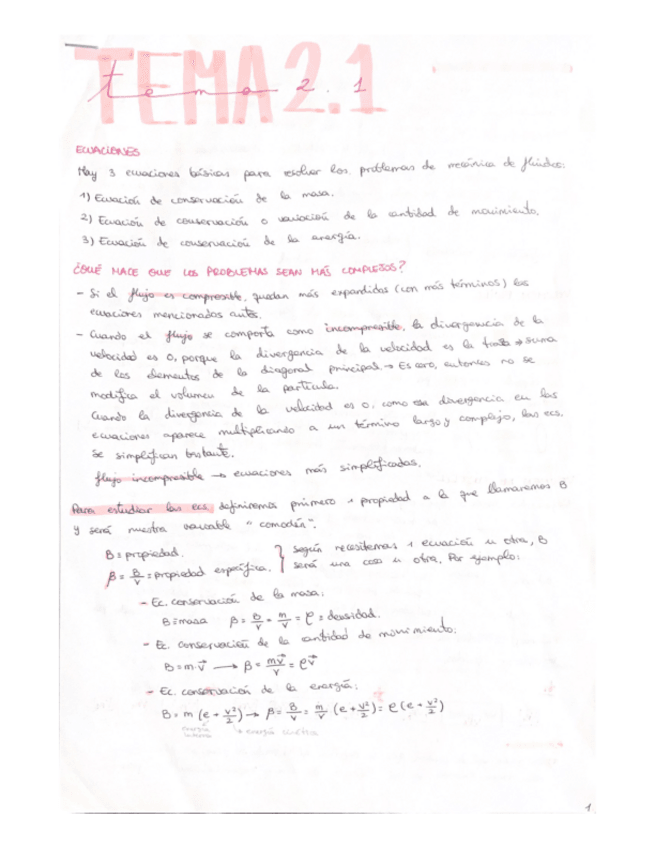 TEMA 2.1
tema 2.1
ECUACIONES
Hay 3 ecuaciones básicas para resolver los problemas de mecánica de fluidos:
1) Ecuación de conservación de la masa.
2) Ecuación de conservación o variación de la cantidad de movimiento.
3) Ecuación de conservación de la energía.
¿QUÉ HACE QUE LOS PROBLEMAS SEAN MÁS COMPLEJOS?
- Si el flujo es compresible, quedan más expandidas (con más términos) las
ecuaciones mencionadas antes.
- Cuando el flujo se comporta como incompresible, la divergencia de la
velocidad es 0, porque la divergencia de la velocidad es la traza → suma
de los elementos de la diagonal principal → Es cero, entonces no se
modifica el volumen de la partícula.
Cuando la divergencia de la velocidad es 0, como esa divergencia en las
ecuaciones aparece multiplicando a un término largo y complejo, las ecs.
se simplifican bastante.
flujo incompresible → ecuaciones más simplificadas.
Para estudiar las ecs. definiremos primero 1 propiedad a la que llamaremos B
y será nuestra variable "comodín".
B = propiedad.
β = B/V = propiedad específica.
} según necesitemos 1 ecuación u otra, B
será una cosa u otra. Por ejemplo:
- Ec. conservación de la masa:
B = masa β = B/V = m/V = ρ = densidad.
- Ec. conservación de la cantidad de movimiento:
B = m·v⃗ → β = mv⃗/V = ρv⃗
- Ec. conservación de la energía:
B = m (e + v²/2) → β = B/V = m/V · (e + v²/2) = ρ (e + v²/2)
energía interna → energía cinética
1